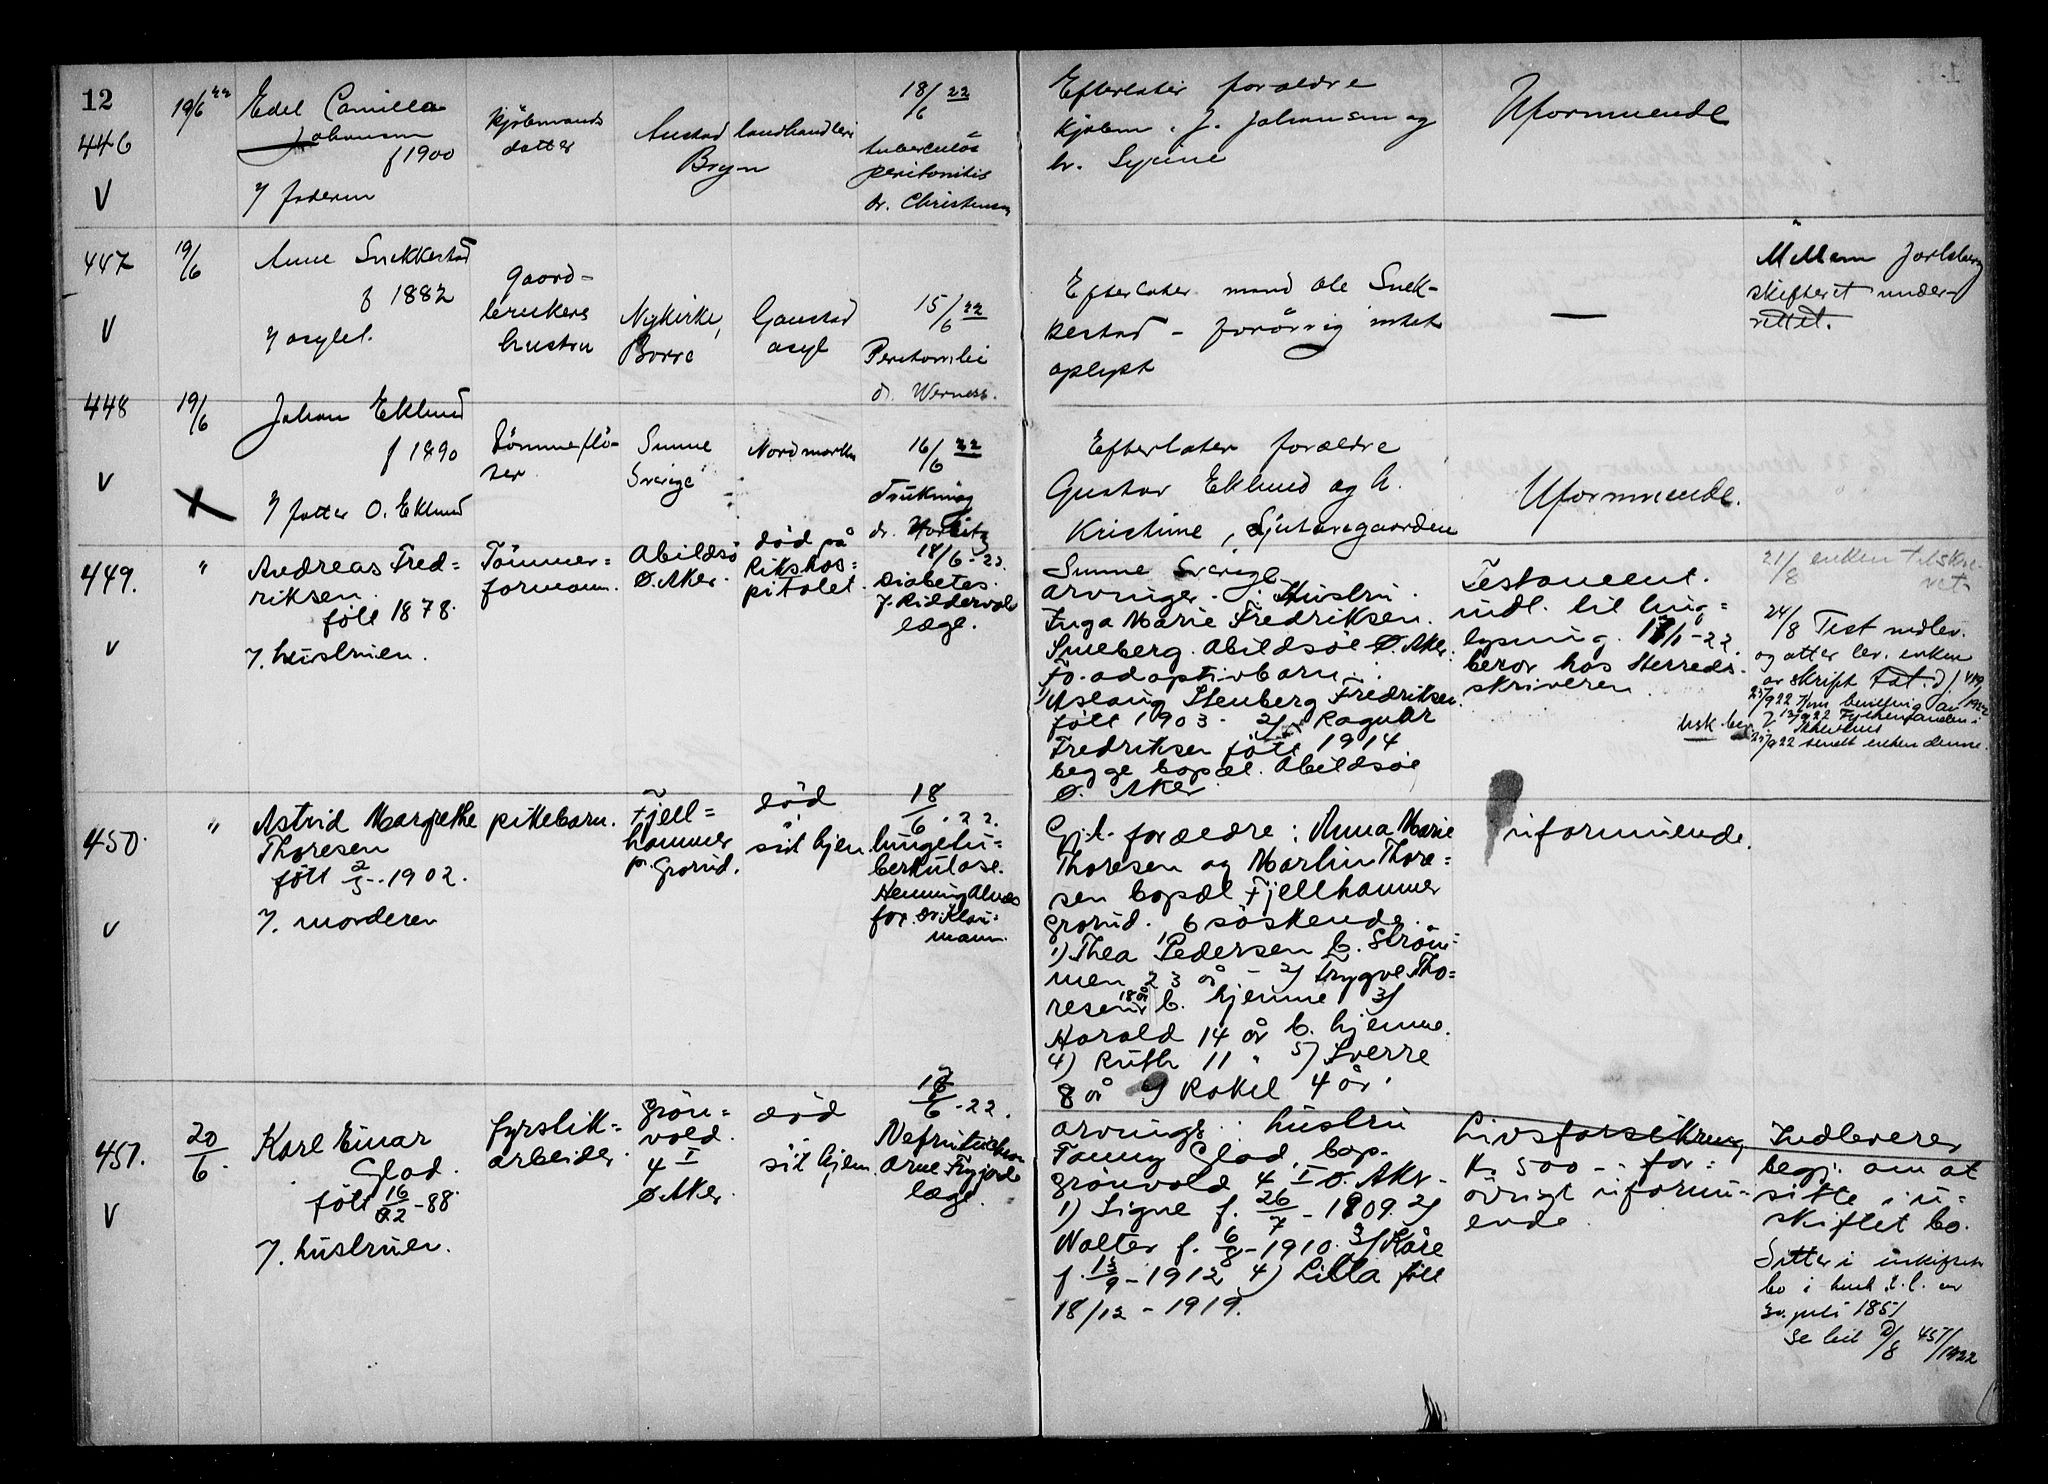 12
446
V
19/6 22
Edel Camilla
Johansen
f 1900
/ faderen
kjøbmands
datter
landhandleri
Bryn
18/6 22
tuberculøs
peritonitis
dr. Christensen
Efterlater forældre
kjøbm. J. Johansen og
h.
Uformuende
447
V
19/6
Anne Snekkestad
f 1882
/ asylet.
Gaard-
brukers
hustru
Nykirke,
Borre
Gaustad
asyl
15/6 22
dr. Werness.
Efterlater mand Ole Snek-
kestad – forøvrig intet
oplyst
—
Jarlsberg
skifteret under-
rettet.
448
V
19/6
Johan Eklund
f 1890
/ fatter O. Eklund
Tømmerflø-
ter
Sunne
Sverige
Nordmarka
16/6 22
Drukning
Efterlater forældre
Gustav Eklund og h.
Kristine,
Sunne Sverige
Uformuende.
449.
V
"
Andreas Fred=
riksen.
født 1878.
/. hustruen.
Tømmer=
formann.
Abildsø
Ø. Aker.
død på
Rikshos=
pitalet.
18/6-22.
Diabetes.
læge.
arvinger. : Hustru.
Inga Marie Fredriksen.
Abildsøe Ø. Aker.
To. adoptivbarn :
1) Aslaug Stenberg Fredriksen.
født 1903. 2/ Ragnar
Fredriksen født 1914
begge bopæl. Abildsøe
Ø. Aker.
Testament.
indl. til ting=
lysning. 17/1-22.
beror hos Herreds-
skriveren.
21/8 enken tilskre-
vet.
24/8 Test indlev.
og atter lev. enken
av skrift
25/9 22 sendt enken denne.
450.
V
"
Astrid Margrethe
Thoresen
født 2/3-1902.
/. moderen
pikebarn.
Fjell=
hammer
p. Grorud.
død
i
sit hjem
18/6-22.
lungetu=
berkulose.
Henning Alvær
for dr. Klau=
mann.
Gj.l. forældre : Anna Marie
Thoresen og Martin Thore=
sen bopæl Fjellhammer
Grorud. 6 søskende.
1) Thea Pedersen b. Strøm=
men 23 år – 2/ Trygve Tho=
resen 18 år b. hjemme 3/
Harald 14 år b. hjemme.
4) Ruth 11 " 5) Sverre
8 år 6) Rakel 4 år.
uformuende.
451.
V
20/6.
Karl Einar
Glad.
født 16/2-88.
/. hustruen.
fyrstik=
arbeider.
Grøn=
vold.
4 I
Ø. Aker.
død
i
sit hjem.
18/6-22.
læge.
arving : hustru
Fanny Glad, bop.
Grønvold 4 I Ø. Aker-
1) Signe f. 26/7-1909. 2/
Walter f. 6/8-1910. 3/ Kåre
f. 13/9-1912 4) Lilla født
18/12-1919.
Livsforsikring
kr 500 -: for=
øvrigt uformu=
ende.
Indleverer
begj. om at
sitte i u=
skiftet bo.
Sitter i uskiftet
bo i hend. t. l. av
30. juli 1851
Se bil 2/8 451/1922